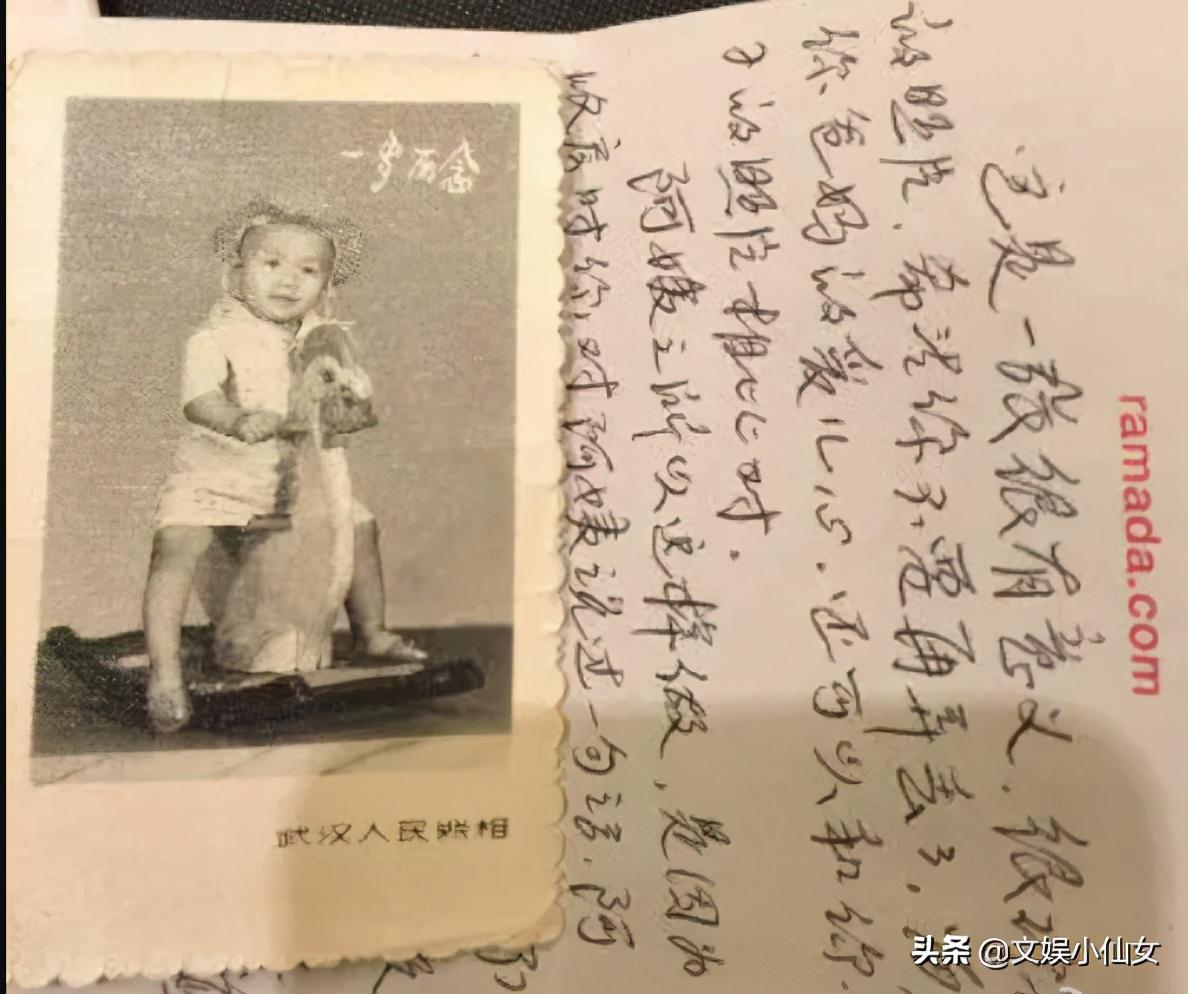 ramada.com
这是一张很有意义,很
的照片,希望你不要再弄丢了,
你爸妈的爱儿心.还可以和你
的照片相比对.
阿姨之所以这样做,是因为
收房时你对阿姨说过一句话,阿
一岁留念
武汉人民照相
头条 @文娱小仙女